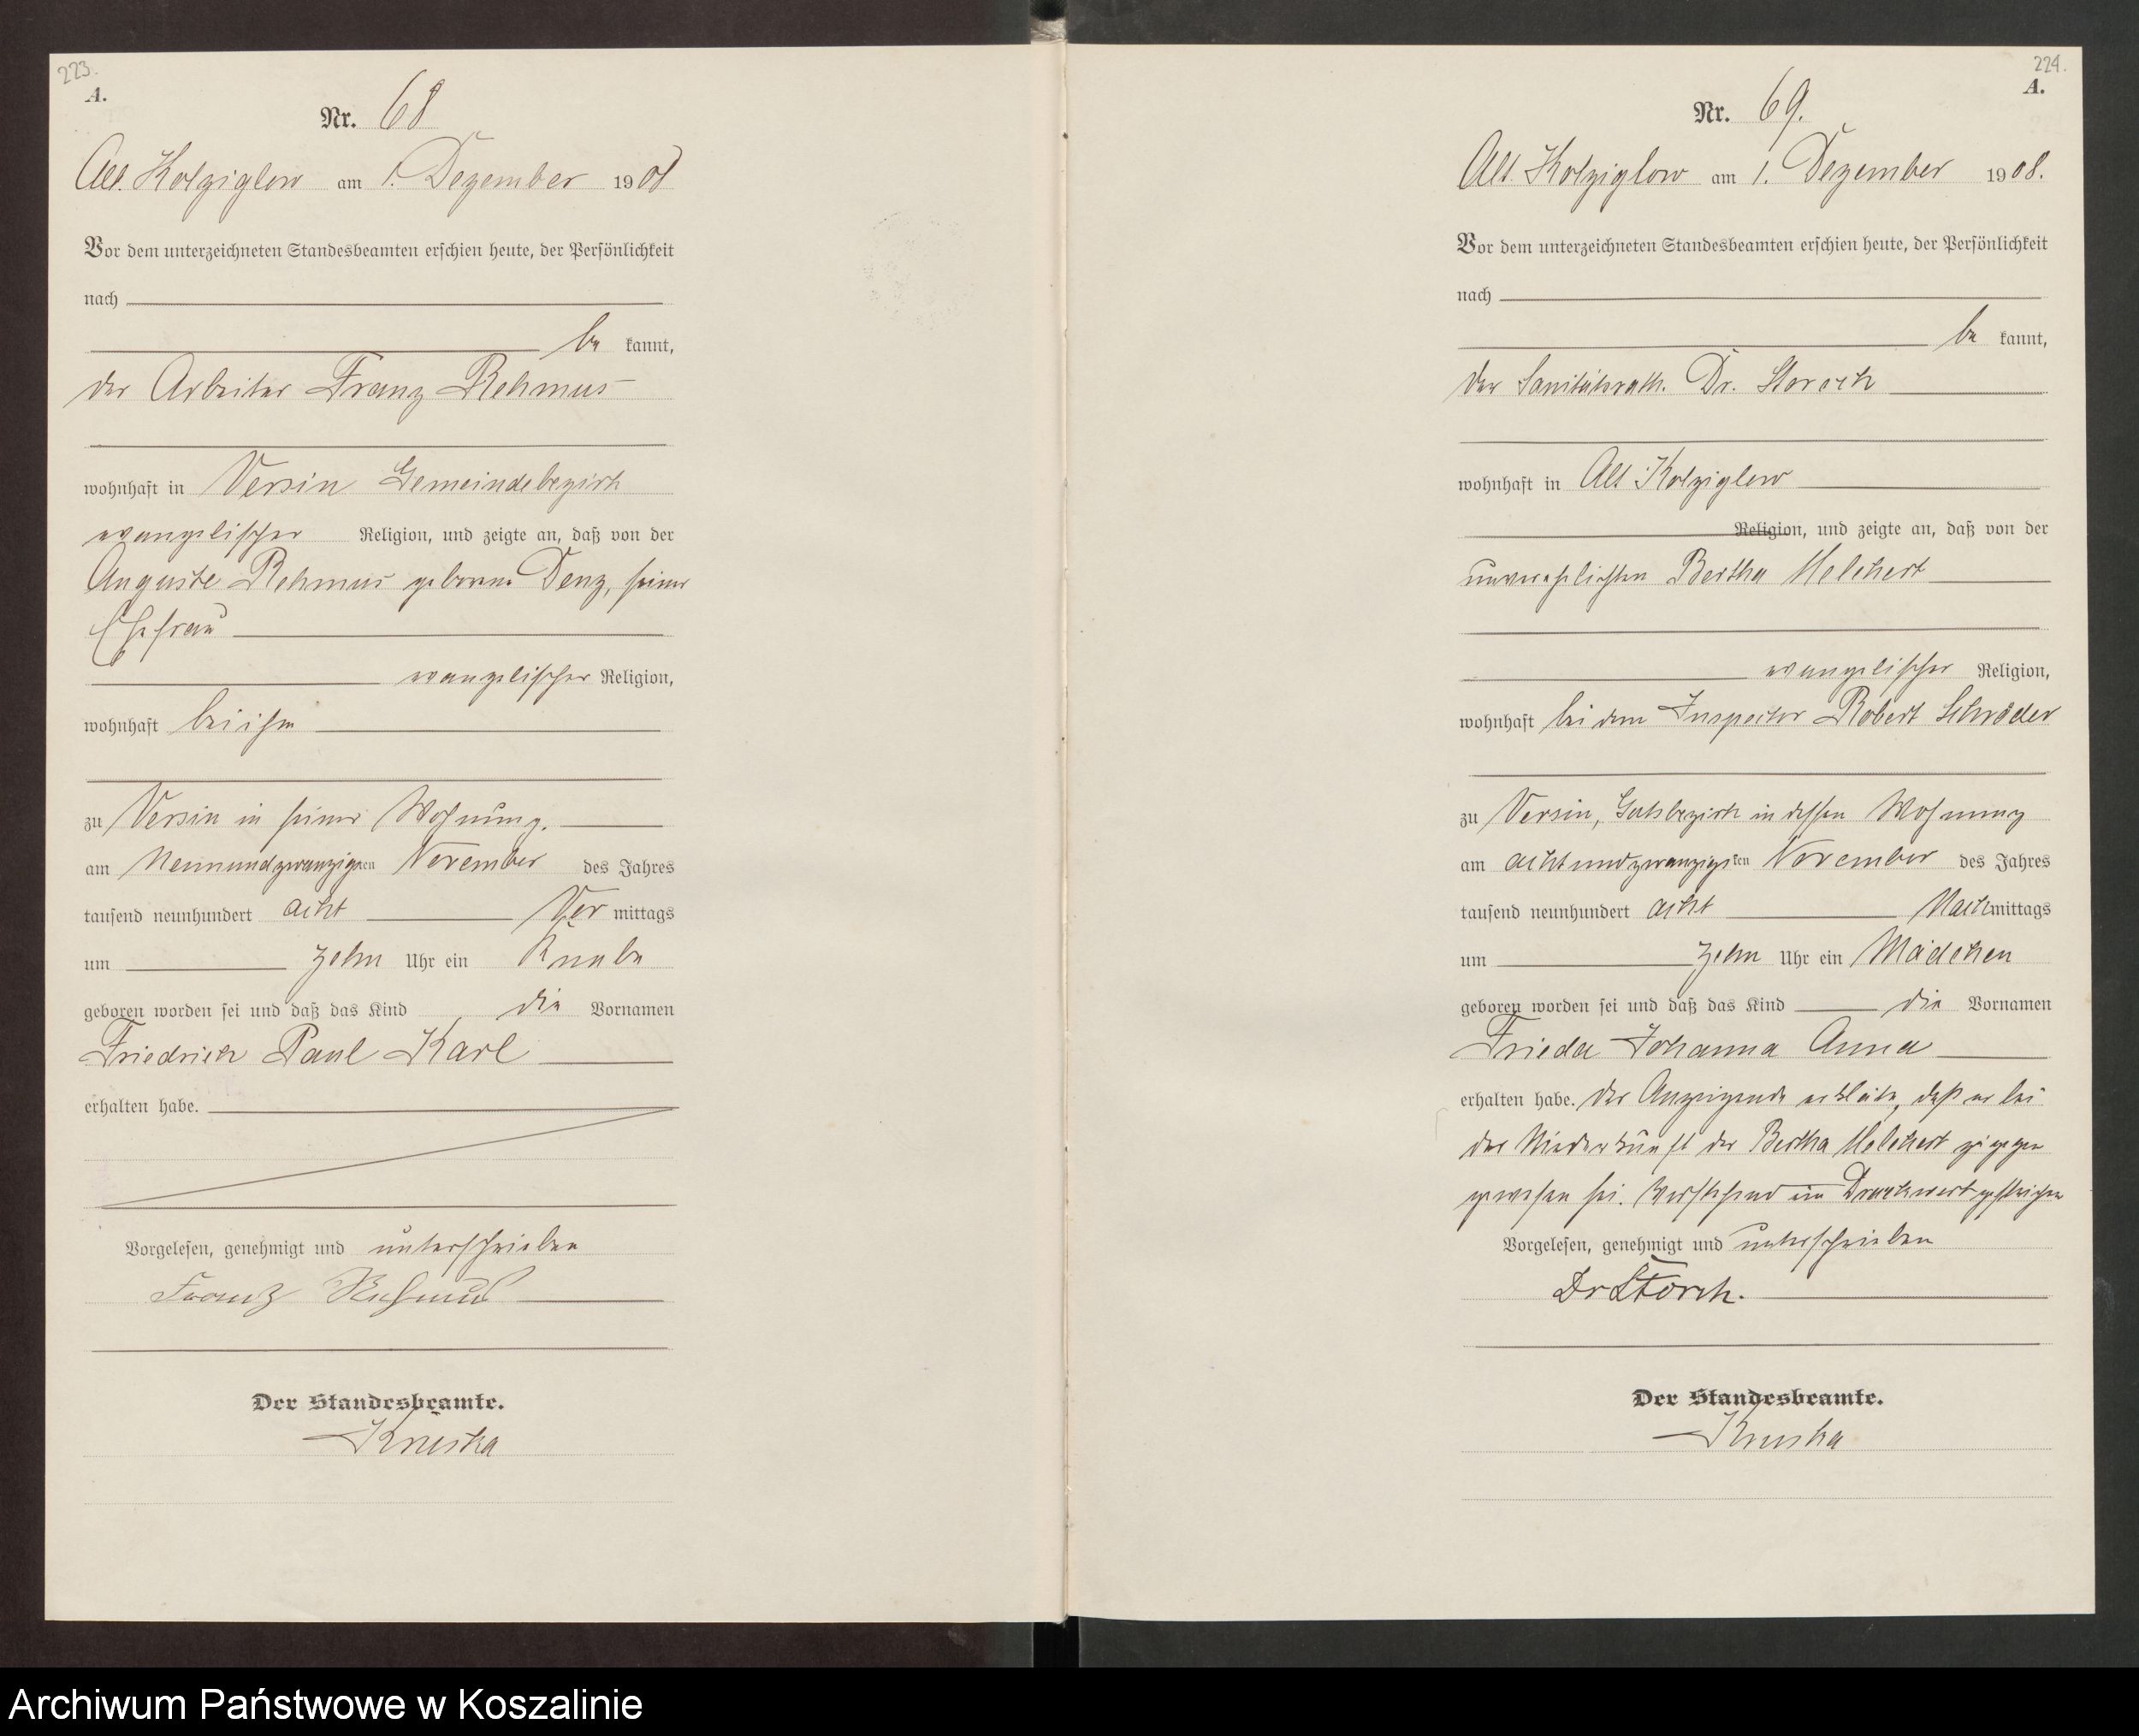 223.
A.
Nr. 68
Alt. Kolziglow am 1. Dezember 1908
Vor dem unterzeichneten Standesbeamten erschien heute, der Persönlichkeit
nach
be kannt,
der Arbeiter Franz Rehmus
wohnhaft in Versin Gemeindebezirk
evangelischer Religion, und zeigte an, daß von der
Auguste Rehmus geborene Denz, seiner
Ehefrau
evangelischer Religion,
wohnhaft bei ihm
zu Versin in seiner Wohnung.
am Neunundzwanzigsten November des Jahres
tausend neunhundert acht Vor mittags
um zehn Uhr ein Knabe
geboren worden sei und daß das Kind die Vornamen
Friedrich Paul Karl
erhalten habe.
Vorgelesen, genehmigt und unterschrieben
Franz Rehmus
Der Standesbeamte.
Kruska
224.
A.
Nr. 69.
Alt. Kolziglow am 1. Dezember 1908.
Vor dem unterzeichneten Standesbeamten erschien heute, der Persönlichkeit
nach
be kannt,
der Sanitätsrath. Dr. Storch
wohnhaft in Alt Kolziglow
Religion, und zeigte an, daß von der
unverehelichten Bertha Melchert
evangelischer Religion,
wohnhaft bei dem Inspector Robert Schröder
zu Versin, Gutsbezirk in dessen Wohnung
am achtundzwanzigsten November des Jahres
tausend neunhundert acht Nachmittags
um zehn Uhr ein Mädchen
geboren worden sei und daß das Kind die Vornamen
Frieda Johanna Anna
erhalten habe. Der Anzeigende erklärte, daß er bei
der Niederkunft der Bertha Melchert zugegen
gewesen sei. Vorstehend ein Druckwort gestrichen
Vorgelesen, genehmigt und unterschrieben
Dr Storch.
Der Standesbeamte.
Kruska
Archiwum Państwowe w Koszalinie